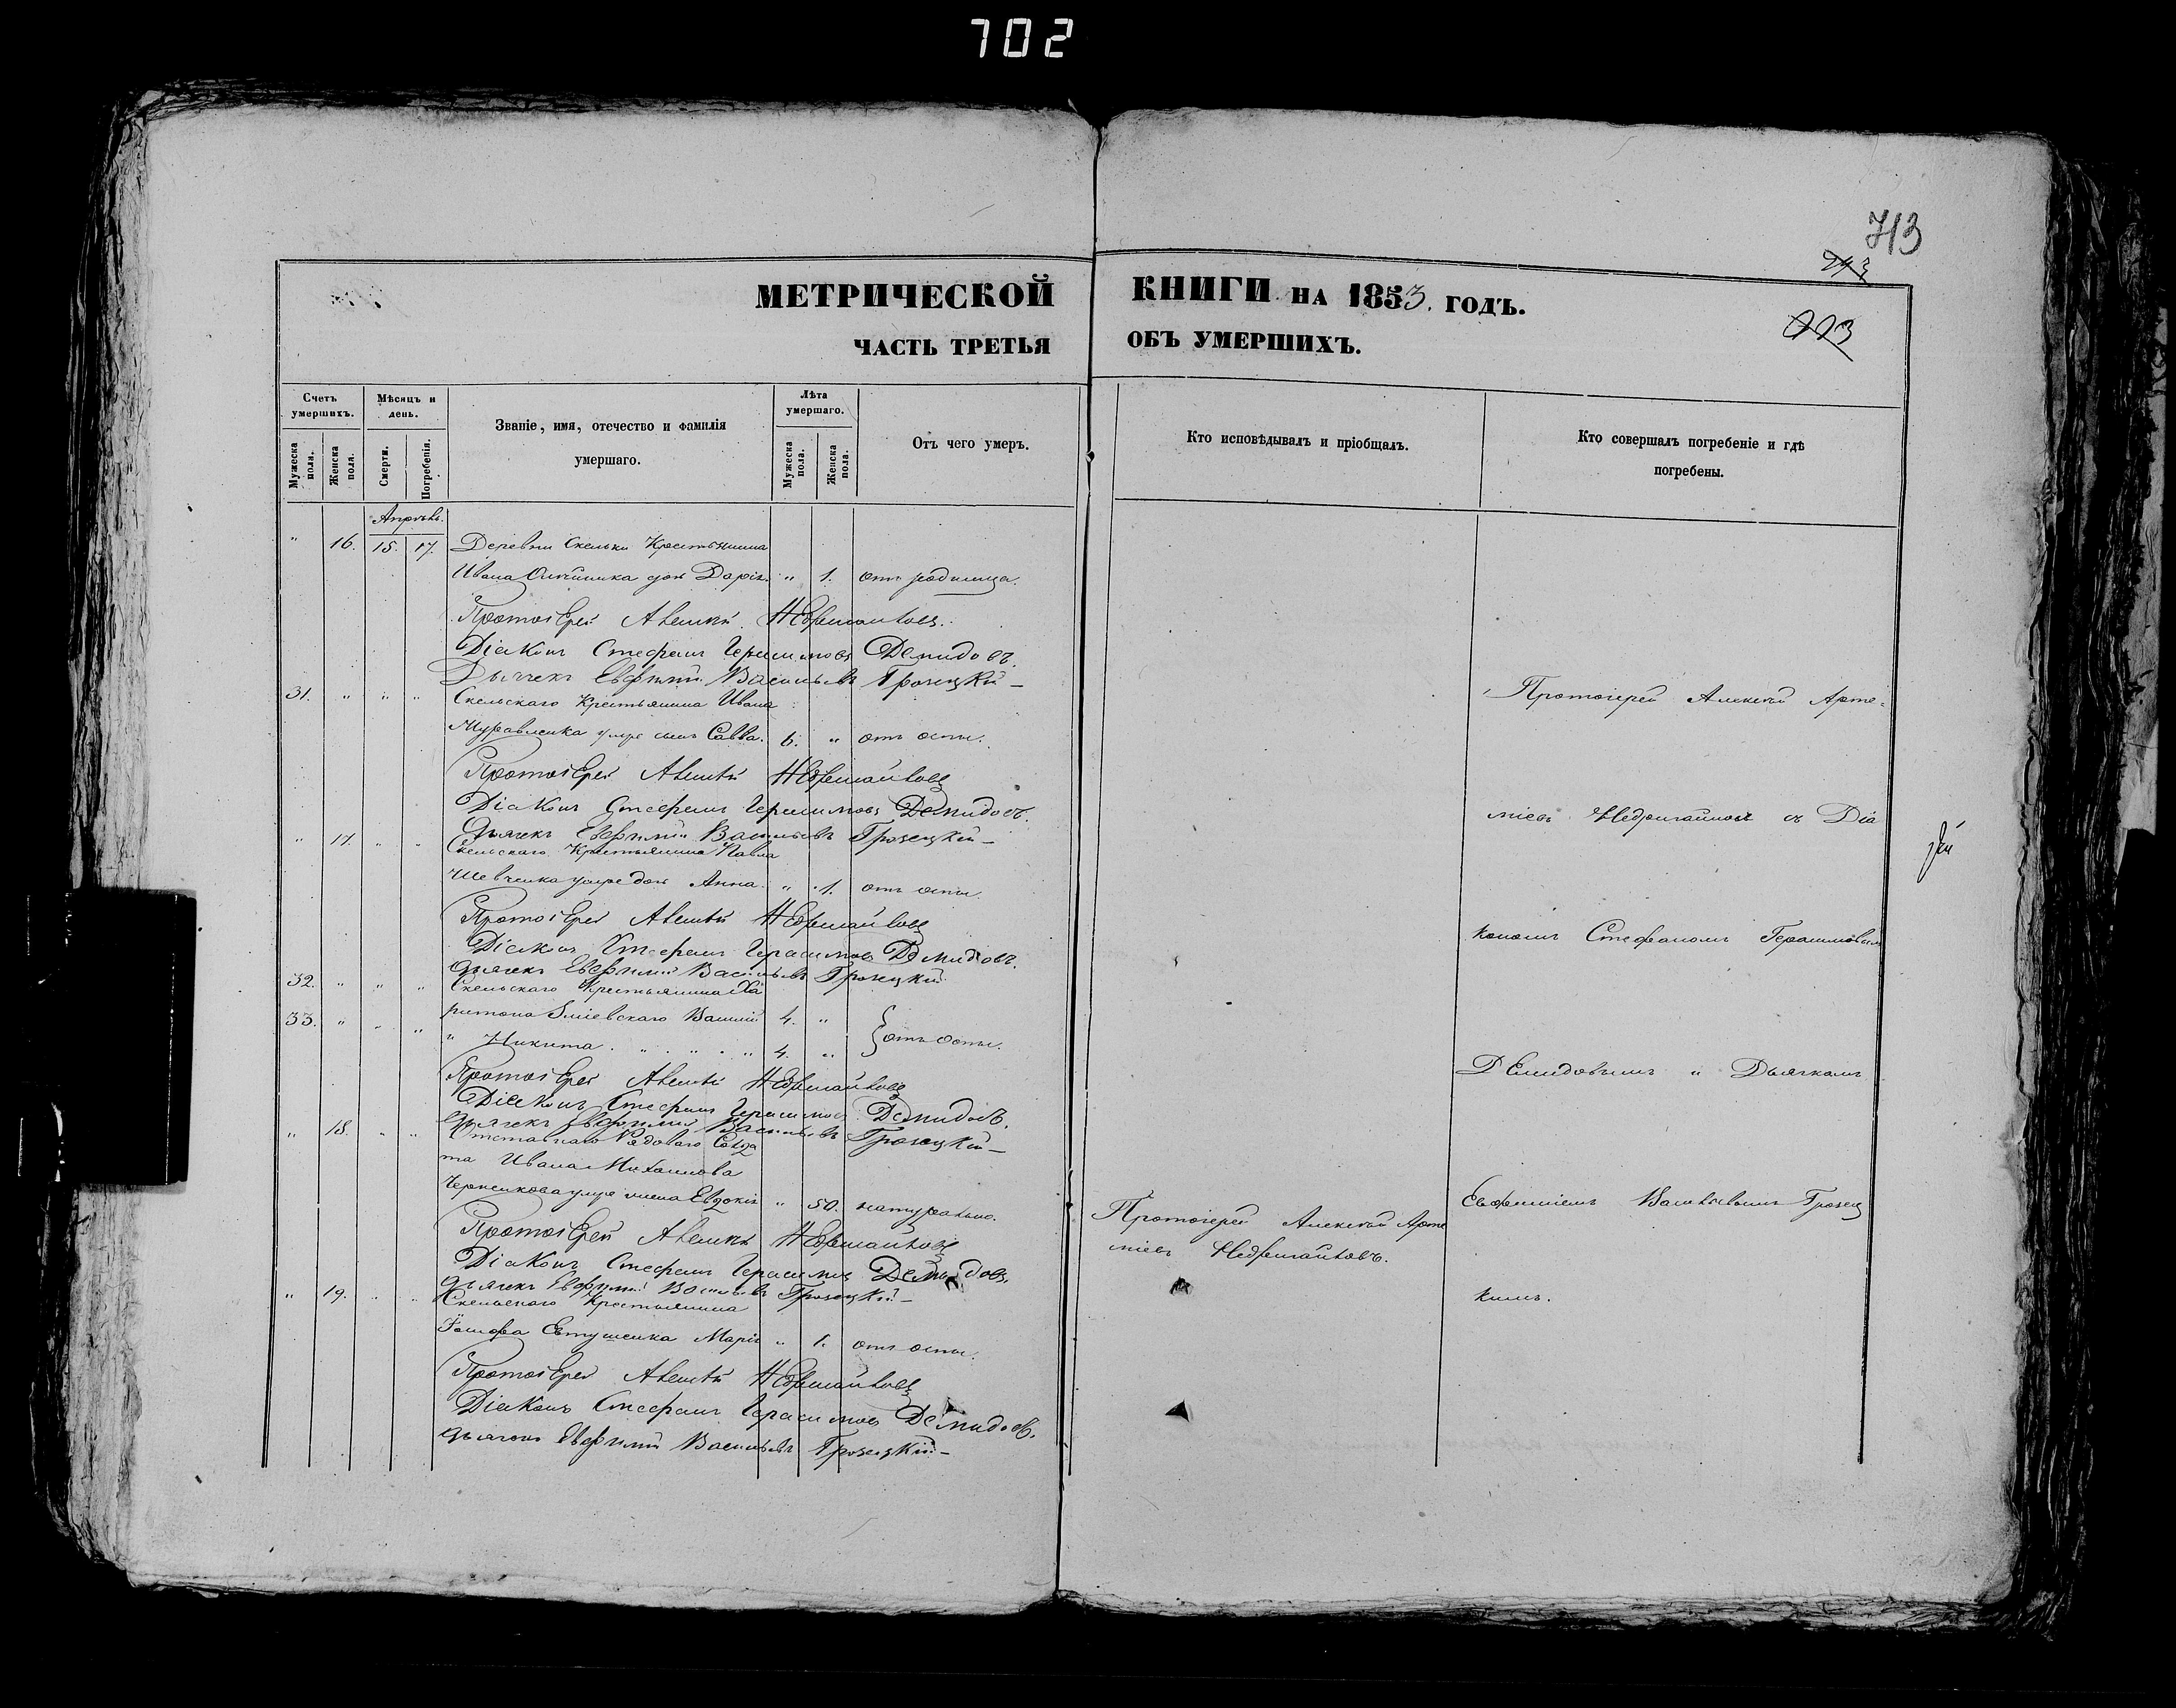 702
713
МЕТРИЧЕСКОЙ КНИГИ НА 1853. ГОДЪ.
ЧАСТЬ ТРЕТЬЯ ОБЪ УМЕРШИХЪ.
Счетъ умершихъ.
Мужеска пола.
Женска пола.
Мѣсяцъ и день.
Смерти.
Погребенія.
Званіе, имя, отечество и фамилія
умершаго.
Лѣта умершаго.
Мужеска пола.
Женска пола.
Отъ чего умеръ.
Кто исповѣдывалъ и пріобщалъ.
Кто совершалъ погребеніе и гдѣ
погребены.
Апрѣль.
" 16. 15. 17. Деревни Скельки Крестьянина
Ивана доч Дарія " 1. отъ родимца.
Протоіерей Алексѣй Недригайловъ
Діаконъ Стефанъ Герасимовъ Демидовъ.
Дьячекъ Евфимій Васильевъ Грозецкій
31. " " " Скельскаго Крестьянина Ивана
Муравленка умре сынъ Савва. 6. " отъ оспы.
Протоіерей Алексѣй Недригайловъ
Діаконъ Стефанъ Герасимовъ Демидовъ.
Дьячекъ Евфимій Васильевъ Грозецкій
" 17. " " Скельскаго Крестьянина Павла
Шевченка умре доч Анна. " 1. отъ оспы.
Протоіерей Алексѣй Недригайловъ
Діаконъ Стефанъ Герасимовъ Демидовъ.
Дьячекъ Евфимій Васильевъ Грозецкій
32. " " " Скельскаго Крестьянина Ха
33. " " " ритона Зміевскаго Василій 4. "
" Никита. " " " " 4. " отъ оспы.
Протоіерей Алексѣй Недригайловъ
Діаконъ Стефанъ Герасимовъ Демидовъ.
Дьячекъ Евфимій Васильевъ Грозецкій
" 18. " " Отставнаго Рядоваго Солда
та Ивана Михаилова
умре жена Евдокія " 50. натурально.
Протоіерей Алексѣй Недригайловъ
Діаконъ Стефанъ Герасимовъ Демидовъ.
Дьячекъ Евфимій Васильевъ Грозецкій
" 19. " " Скельскаго Крестьянина
Евтушенка Марія " 1. отъ оспы.
Протоіерей Алексѣй Недригайловъ
Діаконъ Стефанъ Герасимовъ Демидовъ.
Дьячекъ Евфимій Васильевъ Грозецкій
Протоіерей Алексѣй Арте
міевъ Недригайловъ.
Протоіерей Алексѣй Арте=
міевъ Недригайловъ съ Діа
кономъ Стефаномъ Герасимовымъ
Демидовымъ и Дьячкомъ
Евфиміемъ Васильевымъ Грозец
кимъ.